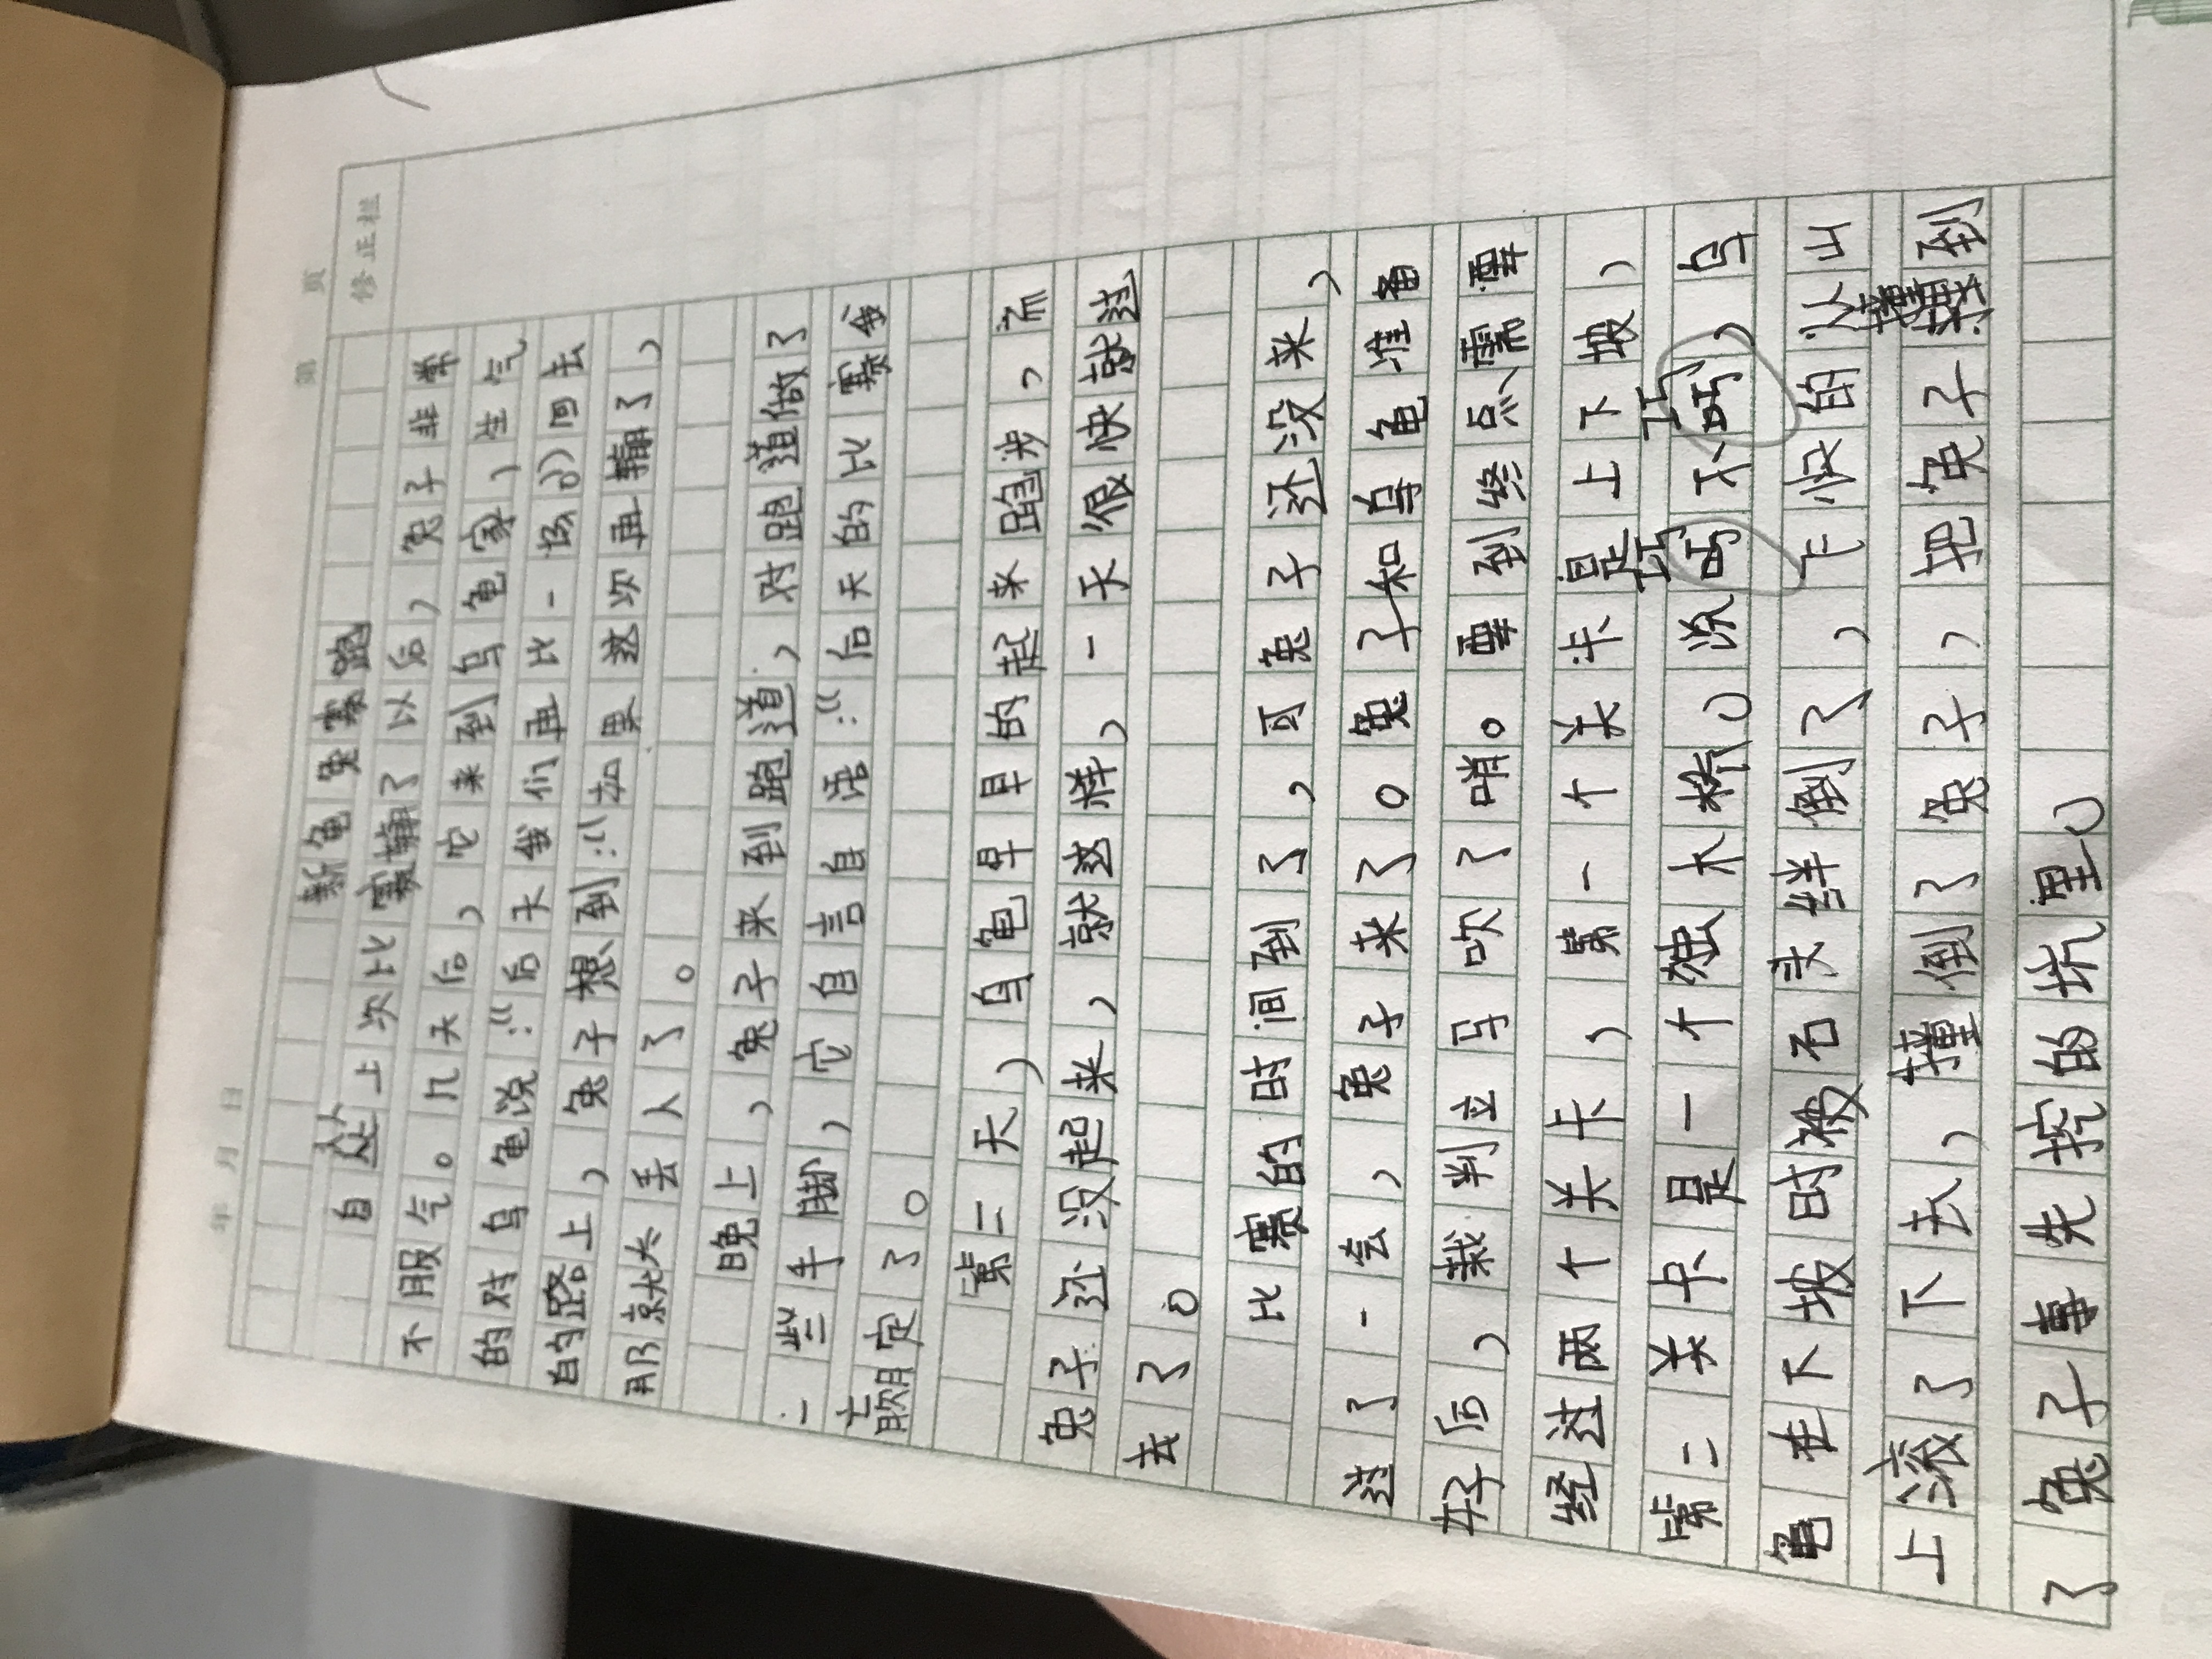 年 月 日 第 页
修正栏
新龟兔赛跑
自从上次比赛输了以后，兔子非常
不服气。几天后，它来到乌龟家，生气
的对乌龟说：“后天我们再比一场。”回去
的路上，兔子想到：“如果这次再输了，
那就太丢人了。
晚上，兔子来到跑道，对跑道做了
一些手脚，它自言自语：“后天的比赛我
赢定了。
第二天，乌龟早早的起来跑步，而
兔子还没起来，就这样，一天很快就过
去了。
比赛的时间到了，可兔子还没来，
过了一会，兔子来了。兔子和乌龟准备
好后，裁判立马吹了哨。要到终点需要
经过两个关卡，第一个关卡是上下坡，
第二关卡是一个独木桥。说巧不巧，乌
龟在下坡时被石头绊倒了，飞快的从山
上滚了下去，撞倒了兔子，把兔子撞到
了兔子事先挖的坑里。